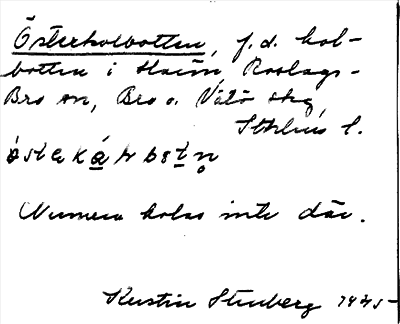 Österkolbotten, f.d. kol-
botten i Harin, Roslags-
Bro sn, Bro o. Vätö skg,
Sthlms l.
Numera kolas inte där.
Kerstin Stenberg 1945